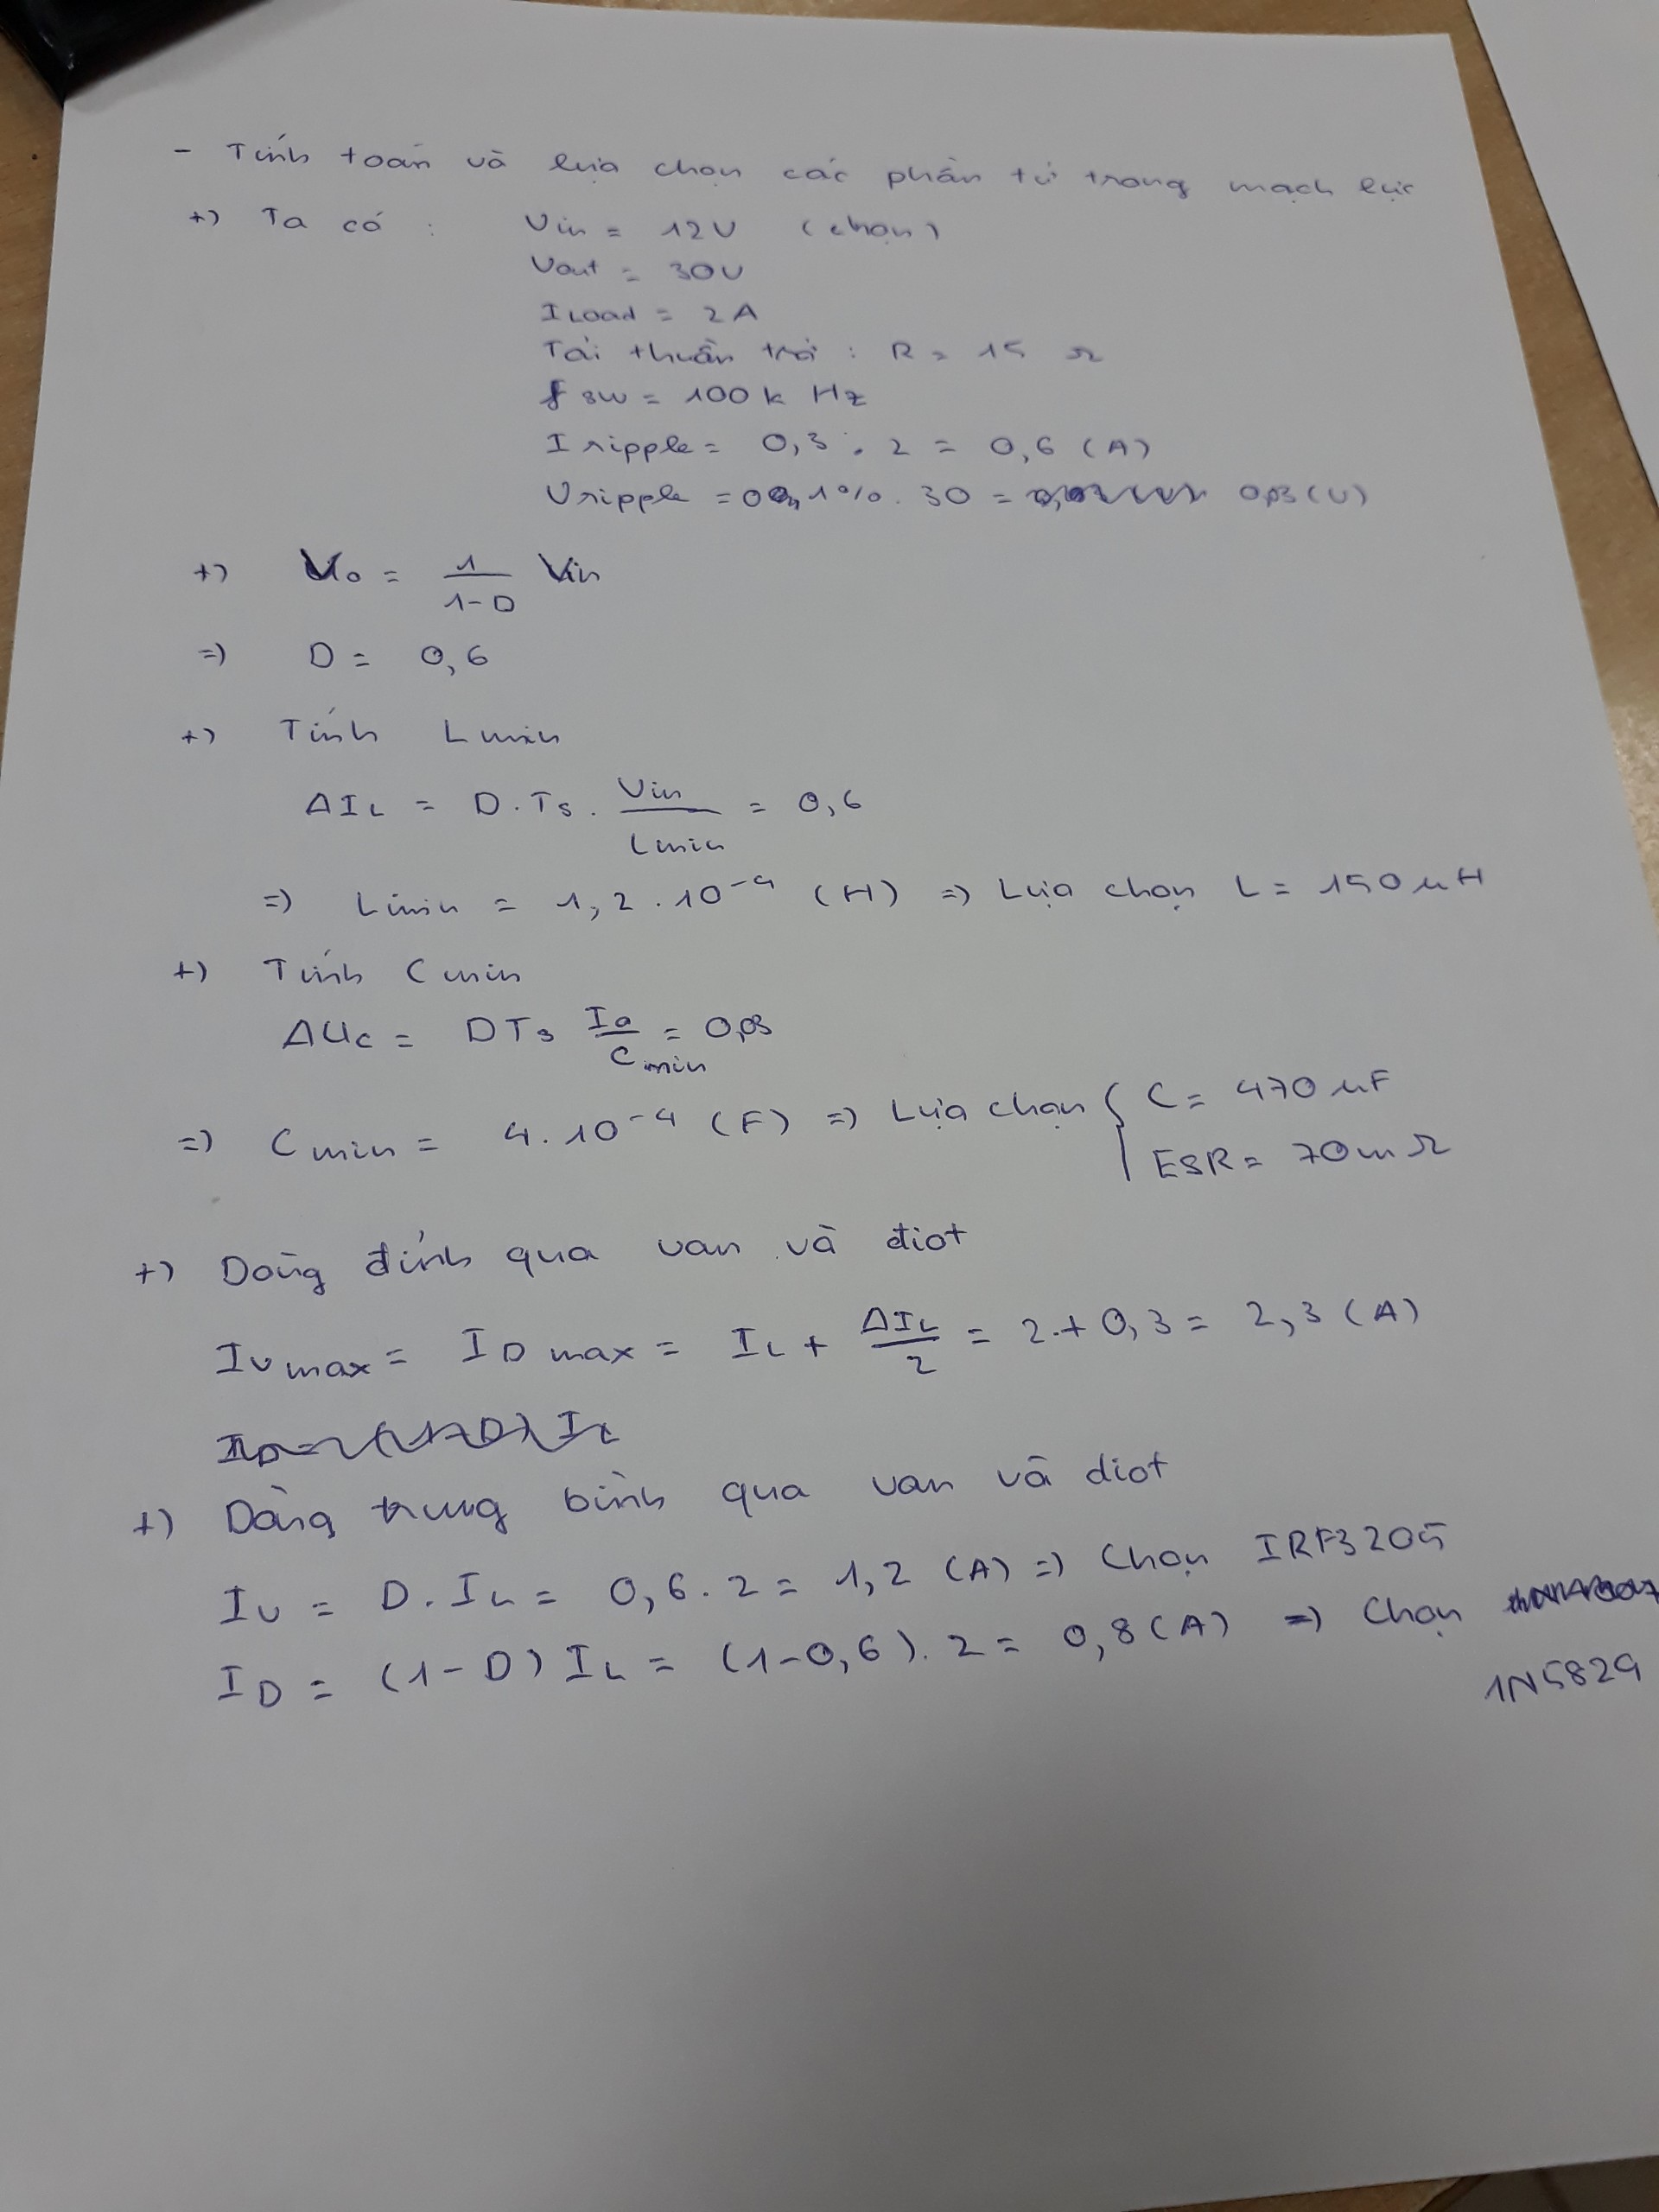 - Tính toán và lựa chọn các phần tử trong mạch lực
+) Ta có : Vin = 12V (chọn)
Vout = 30V
ILoad = 2A
Tải thuần trở : R = 15 Ω
fsw = 100k Hz
Iripple = 0,3 . 2 = 0,6 (A)
Uripple = 0,1% . 30 = 0,03 (V)
+) Vo = 1/(1-D) Vin
=> D = 0,6
+) Tính Lmin
ΔIL = D.Ts. Vin/Lmin = 0,6
=> Lmin = 1,2 . 10⁻⁴ (H) => Lựa chọn L = 150 μH
+) Tính Cmin
ΔUc = DTs Io/Cmin = 0,03
=> Cmin = 4.10⁻⁴ (F) => Lựa chọn { C = 470 μF
ESR = 70mΩ
+) Dòng đỉnh qua van và điot
Ivmax = IDmax = IL + ΔIL/2 = 2 + 0,3 = 2,3 (A)
+) Dòng trung bình qua van và diot
Iv = D.IL = 0,6 . 2 = 1,2 (A) => Chọn IRF3205
ID = (1-D) IL = (1-0,6) . 2 = 0,8 (A) => Chọn
1N5824